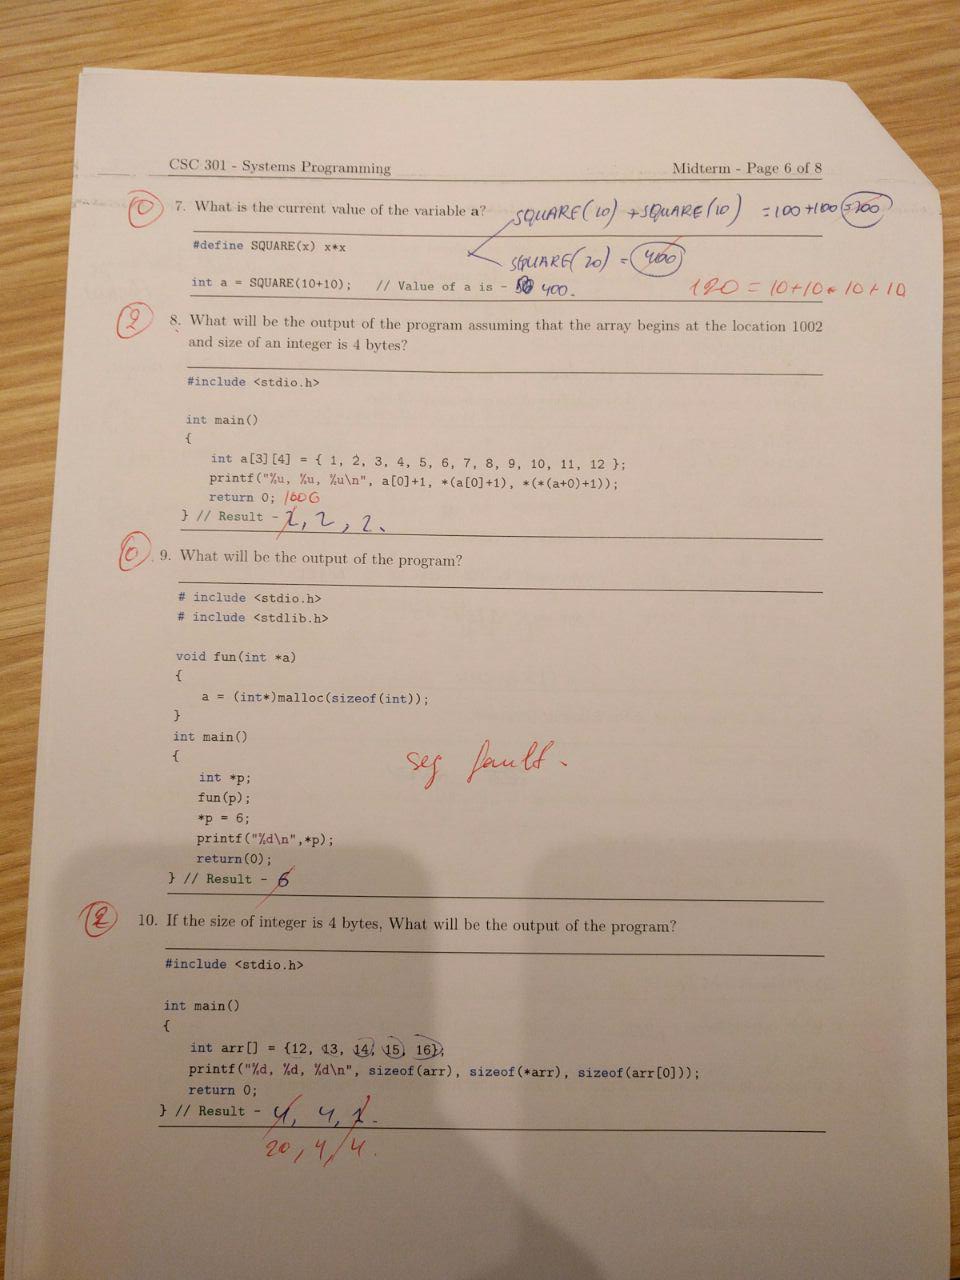 CSC 301 - Systems Programming Midterm - Page 6 of 8
0 7. What is the current value of the variable a? SQUARE(10) + SQUARE(10) = 100 + 100 = 200
#define SQUARE(x) x*x
SQUARE(20) = 400
int a = SQUARE(10+10); // Value of a is - 400.
120 = 10+10*10+10
2 8. What will be the output of the program assuming that the array begins at the location 1002
and size of an integer is 4 bytes?
#include <stdio.h>
int main()
{
int a[3][4] = { 1, 2, 3, 4, 5, 6, 7, 8, 9, 10, 11, 12 };
printf("%u, %u, %u\n", a[0]+1, *(a[0]+1), *(*(a+0)+1));
return 0; 1006
} // Result - 2, 2, 2.
0 9. What will be the output of the program?
# include <stdio.h>
# include <stdlib.h>
void fun(int *a)
{
a = (int*)malloc(sizeof(int));
}
int main()
{
seg fault.
int *p;
fun(p);
*p = 6;
printf("%d\n",*p);
return(0);
} // Result - 6
2 10. If the size of integer is 4 bytes, What will be the output of the program?
#include <stdio.h>
int main()
{
int arr[] = {12, 13, 14, 15, 16};
printf("%d, %d, %d\n", sizeof(arr), sizeof(*arr), sizeof(arr[0]));
return 0;
} // Result - 4, 4, 1.
20, 4, 4.